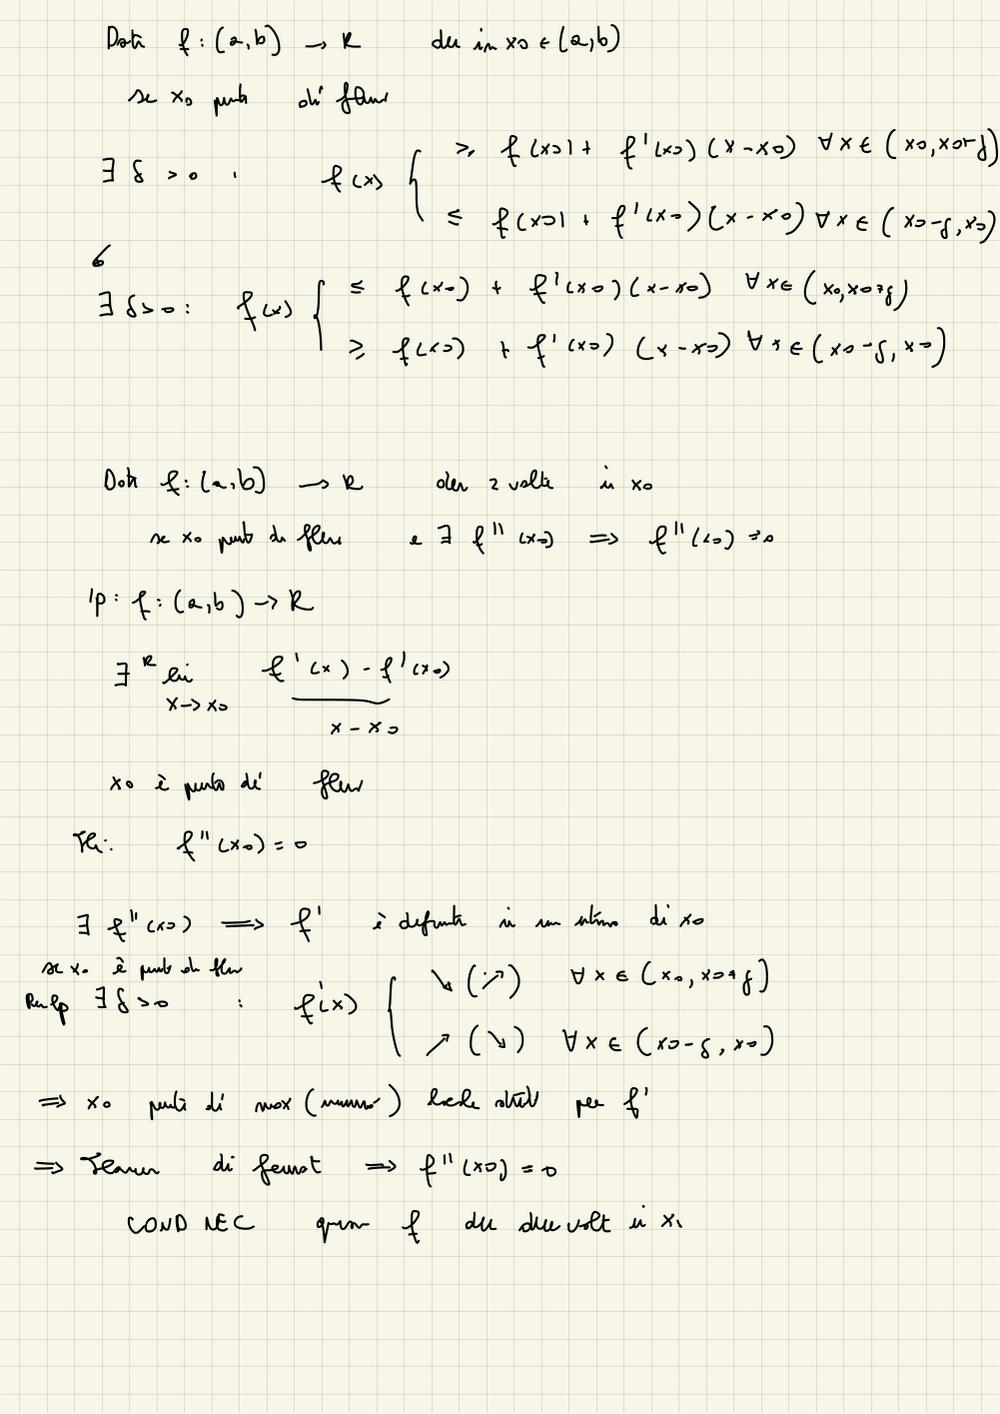 Data f : (a,b) → R der in x0 ∈ (a,b)
se x0 punto di flesso
∃ δ > 0 : f(x) { ≥ f(x0) + f'(x0)(x-x0) ∀x ∈ (x0, x0+δ)
≤ f(x0) + f'(x0)(x-x0) ∀x ∈ (x0-δ, x0)
o
∃ δ > 0 : f(x) { ≤ f(x0) + f'(x0)(x-x0) ∀x ∈ (x0, x0+δ)
≥ f(x0) + f'(x0) (x-x0) ∀x ∈ (x0-δ, x0)
Data f : (a,b) → R der 2 volte in x0
se x0 punto di flesso e ∃ f''(x0) ⇒ f''(x0) = 0
Ip: f : (a,b) → R
∃ R lim x→x0 f'(x) - f'(x0) / x - x0
x0 è punto di flesso
Th: f''(x0) = 0
∃ f''(x0) ⇒ f' è definita in un intorno di x0
se x0 è punto di flesso
∃ δ > 0 : f'(x) { ↘ (↗) ∀x ∈ (x0, x0+δ)
↗ (↘) ∀x ∈ (x0-δ, x0)
⇒ x0 punto di max (minimo) locale per f'
⇒ Teorema di fermat ⇒ f''(x0) = 0
COND NEC f der due volt in x